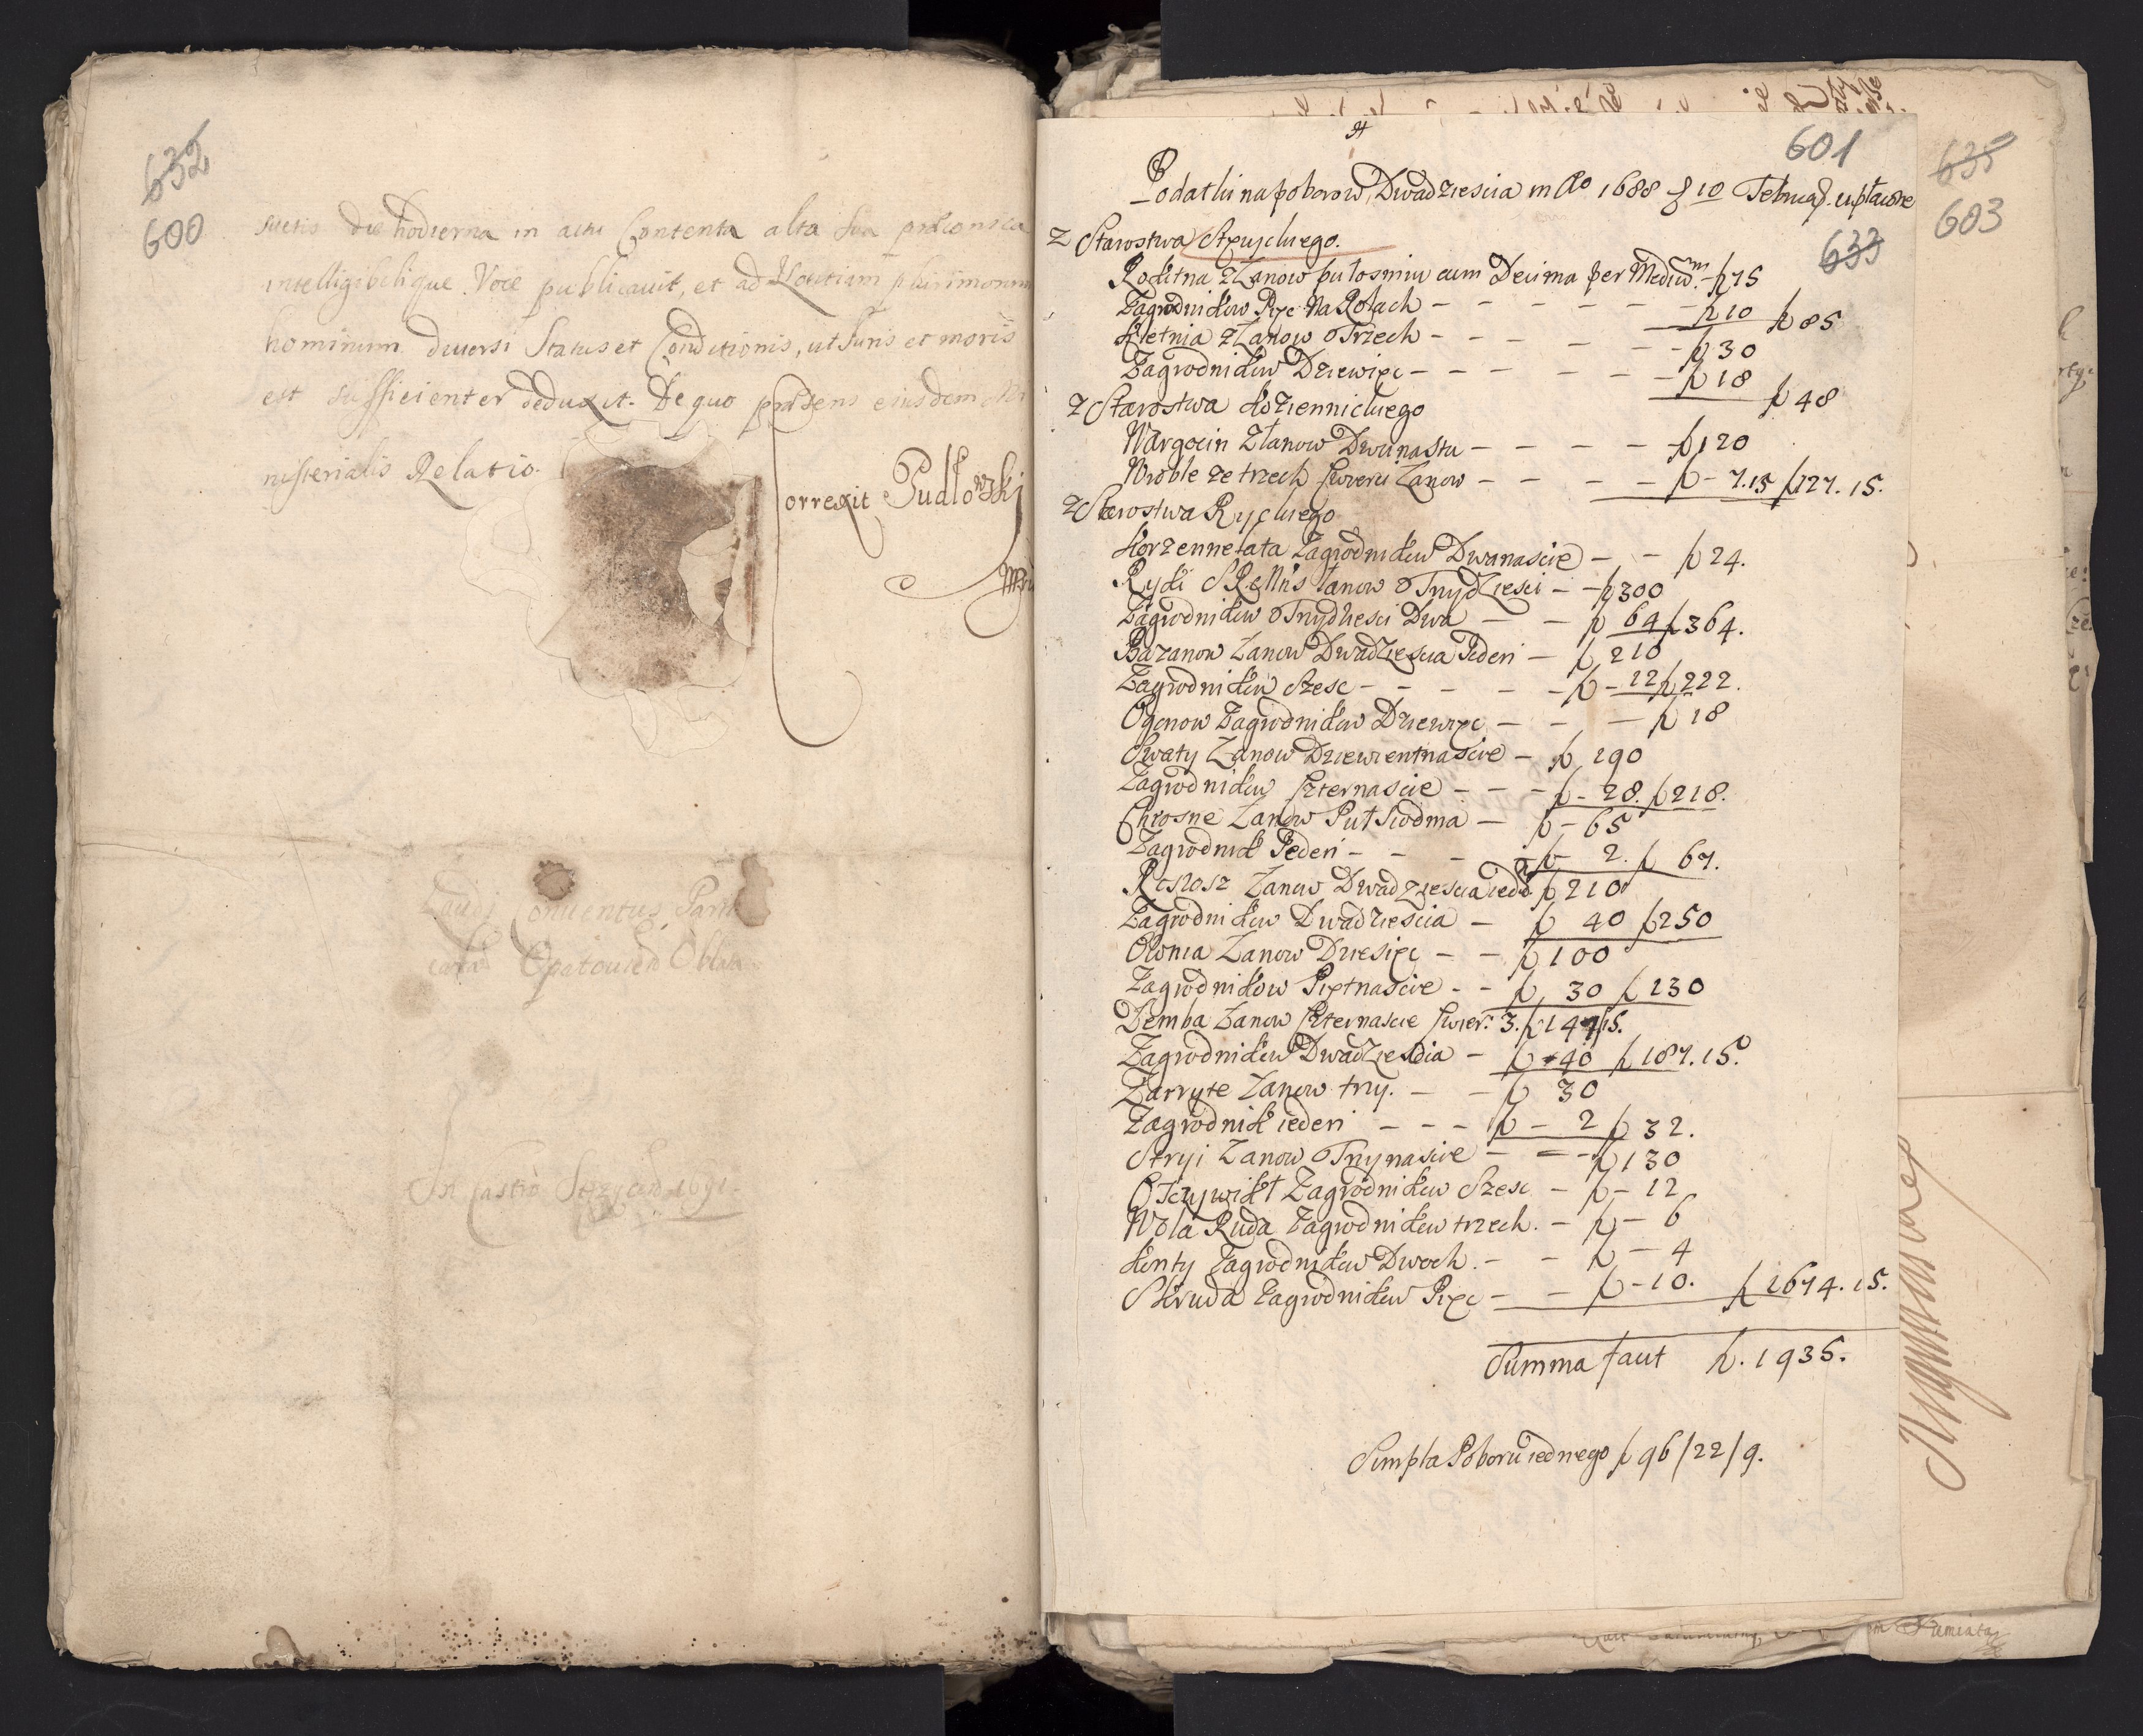 632
600
suetis die hodierna in actu Contenta alta sua præconica
intelligibilique Voce publicavit, et ad Notitiam plurimorum
hominum diversi Status et Conditionis, ut Juris et moris
est sufficienter deduxit. De quo præsens eiusdem
nisterialis Relatio.
Correxit Pudłowski
Laudi Conventus Parti
Opatovien Oblata
In Castro 1691.
601
Podatku na poborow Dwadziescia in Ao 1688 10 Februar. upłacone
635
603
633
z Starostwa Stęzyckiego.
Rokitna z Łanow pułosmiu cum Decima per Medium - f 75
Zagrodnikow Pięc Na Rolach - - - - - - f 10 f 85
Kletnia z Łanow Trzech - - - - - - f 30
Zagrodnikow Dziewięc - - - - - - f 18
f 48
z Starostwa Kozienickiego
Wargocin z Łanow Dwunastu - - - - - f 120
Wroble ze trzech Cwierci Łanow - - - - f - 7.15 f 127. 15.
z Starostwa Ryckiego
Korzenne lata Zagrodnikow Dwanascie - - f 24.
Ryki Łanow Trzydziesci - - f 300
Zagrodnikow Trzydziesci Dwa - - f 64 f 364.
Bazanow Łanow Dwadziescia Jeden - f 210
Zagrodnikow Szesc - - - - - f - 12 f 222.
Ogonow Zagrodnikow Dziewięc - - - f 18
Swaty Łanow Dziewientnascie - f 190
Zagrodnikow Czternascie - - - f - 28. f 218.
Chrosne Łanow Puł Siodma - f - 65
Zagrodnik Jeden - - - f - 2. f 67.
Rososz Łanow Dwadziescia ieden f 210
Zagrodnikow Dwadziescia - f 40 f 250
Ownia Łanow Dziesięc - - f 100
Zagrodnikow Piętnascie - - f 30 f 130
Demba Łanow Czternascie Cwier: 3. f 147/15.
Zagrodnikow Dwadziescia - f 40 f 187. 15.
Zarryte Łanow trzy. - - f 30
Zagrodnik ieden - - - f - 2 f 32.
Stryi Łanow Trzynascie - - - f 130
Oszywilkt Zagrodnikow Szesc - f - 12
Wola Ruda Zagrodnikow trzech. - f - 6
Kenty Zagrodnikow Dwoch. - - f - 4
Skruda Zagrodnikow Pięc - - f - 10. f 1674. 15.
Summa faut f. 1935.
Simpla Poboru iednego f 96/22/9.